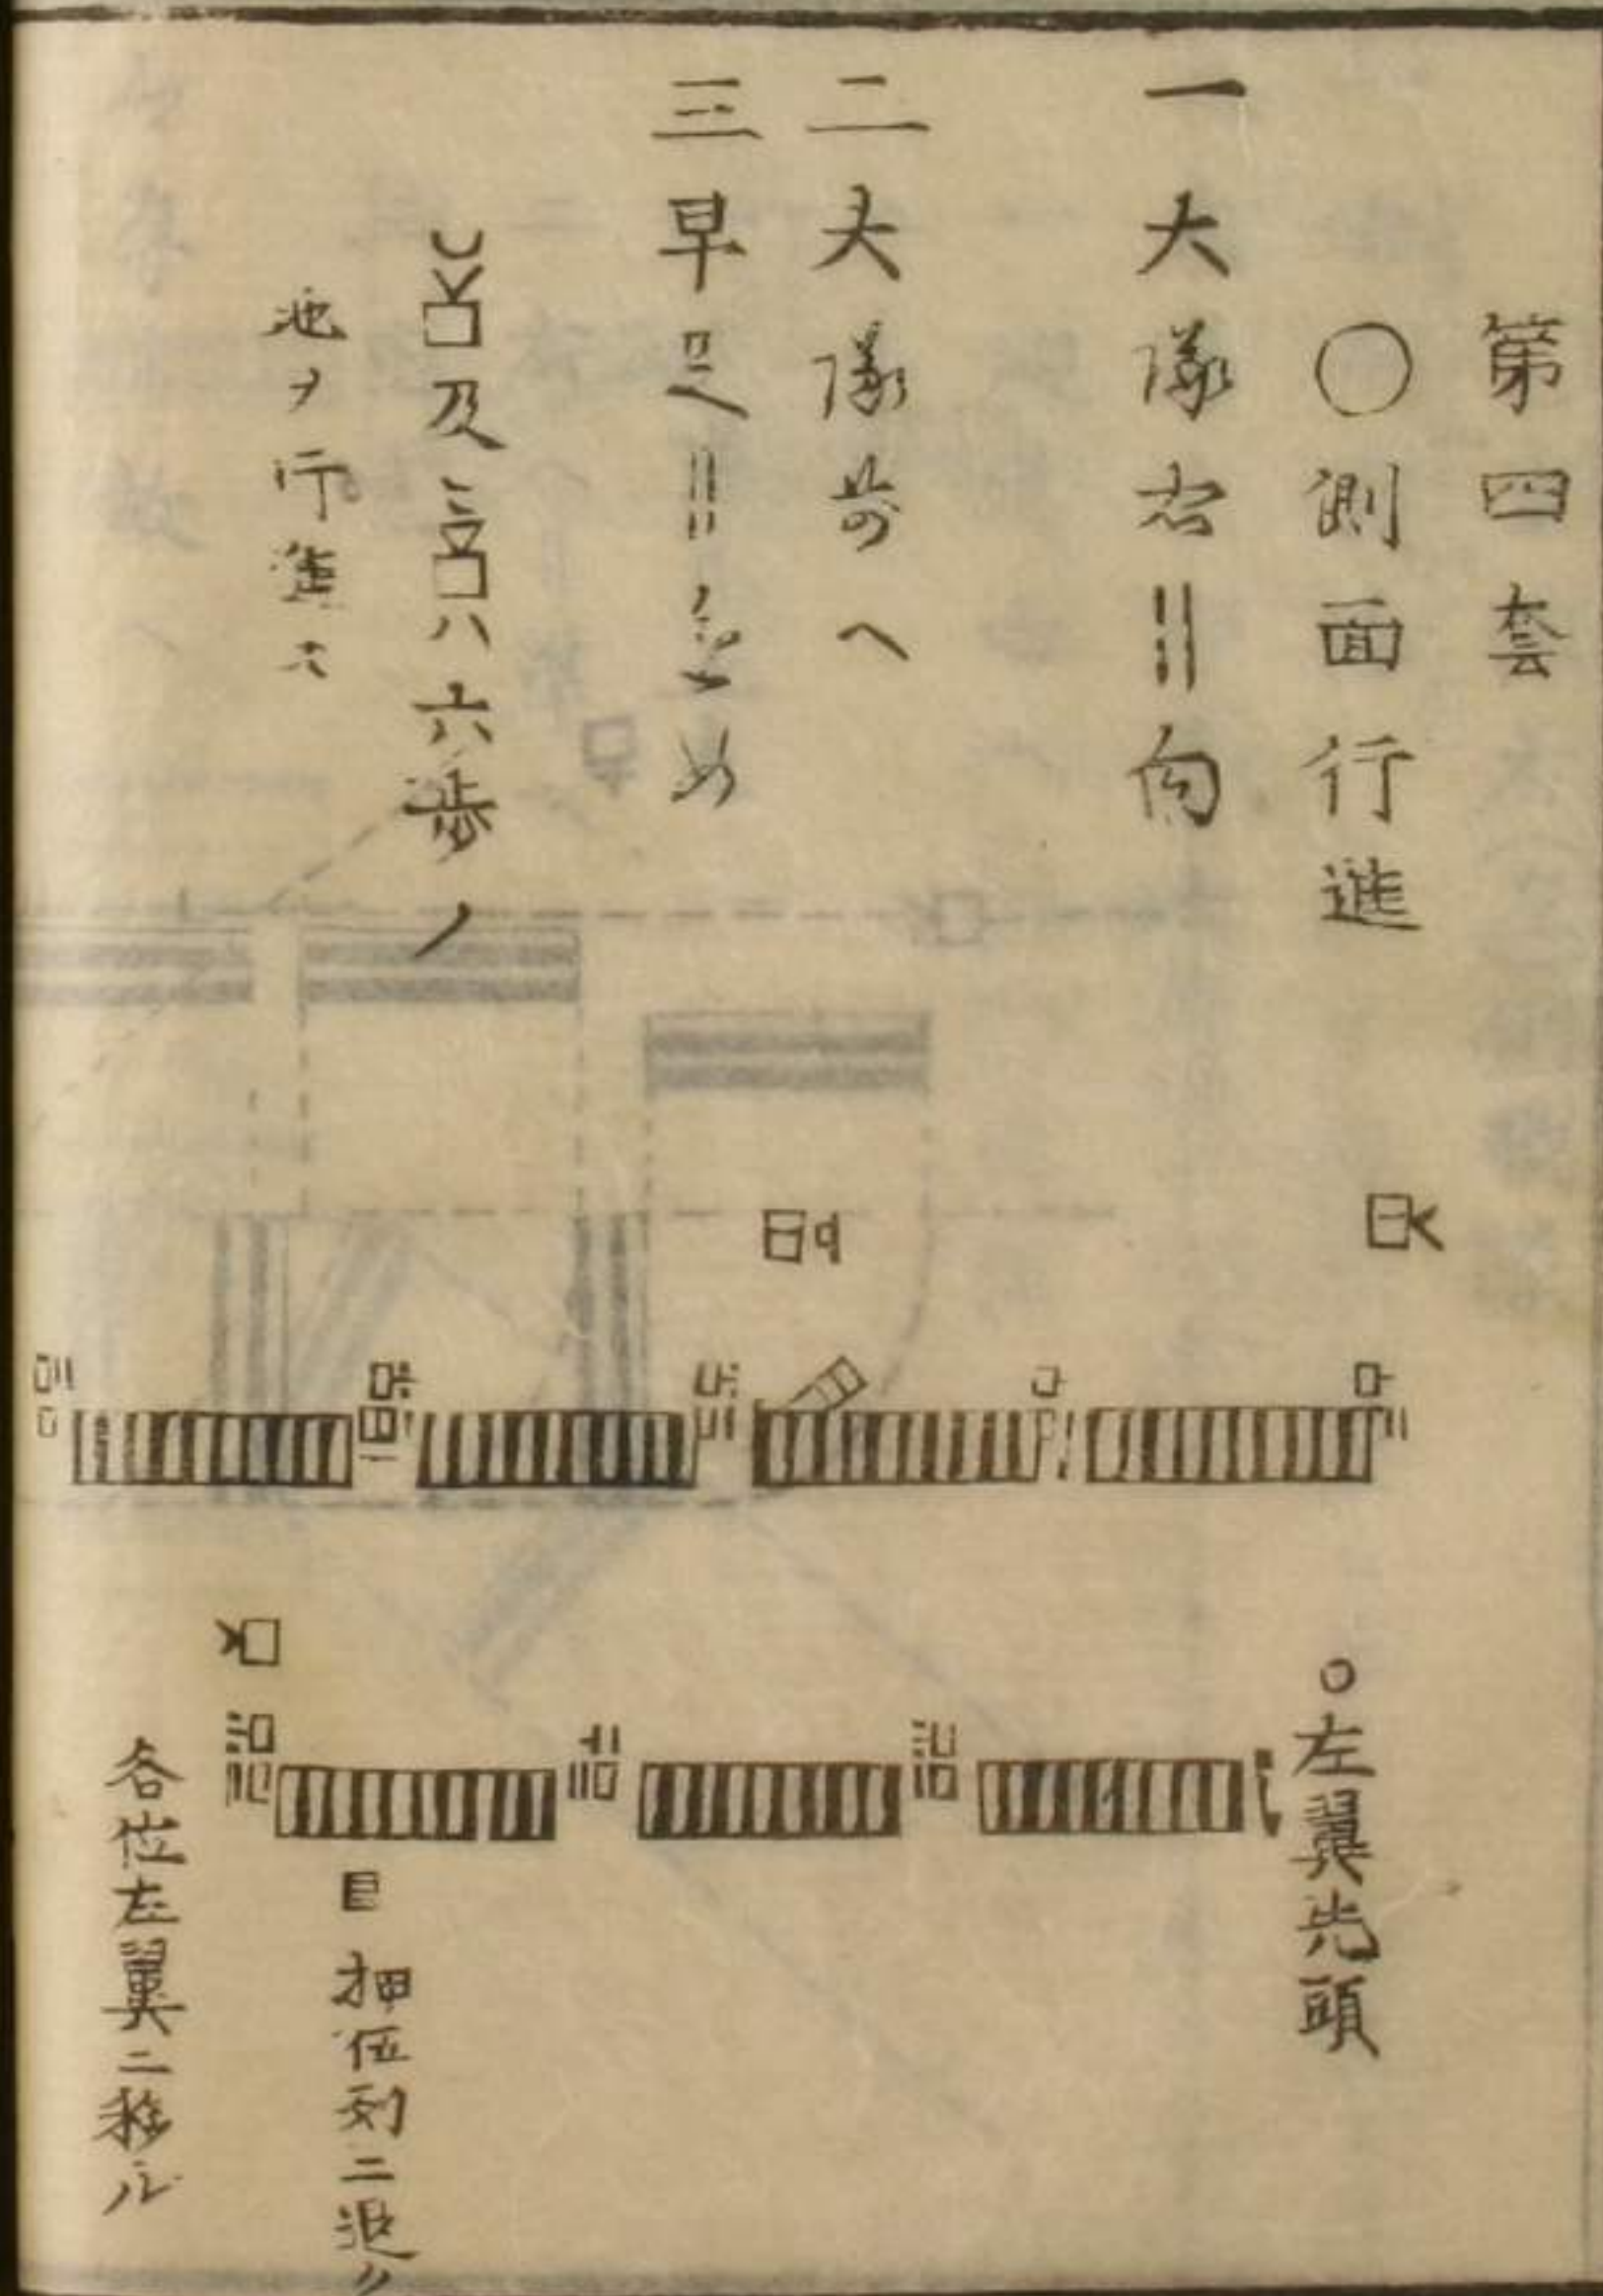 第四套
○測面行進
一大隊右∥向
二大隊前へ
三早足∥すゝめ
及言八六歩ノ
地ヲ行進ス
○左翼先頭
押伍列ニ退ク
各位左翼ニ移ル